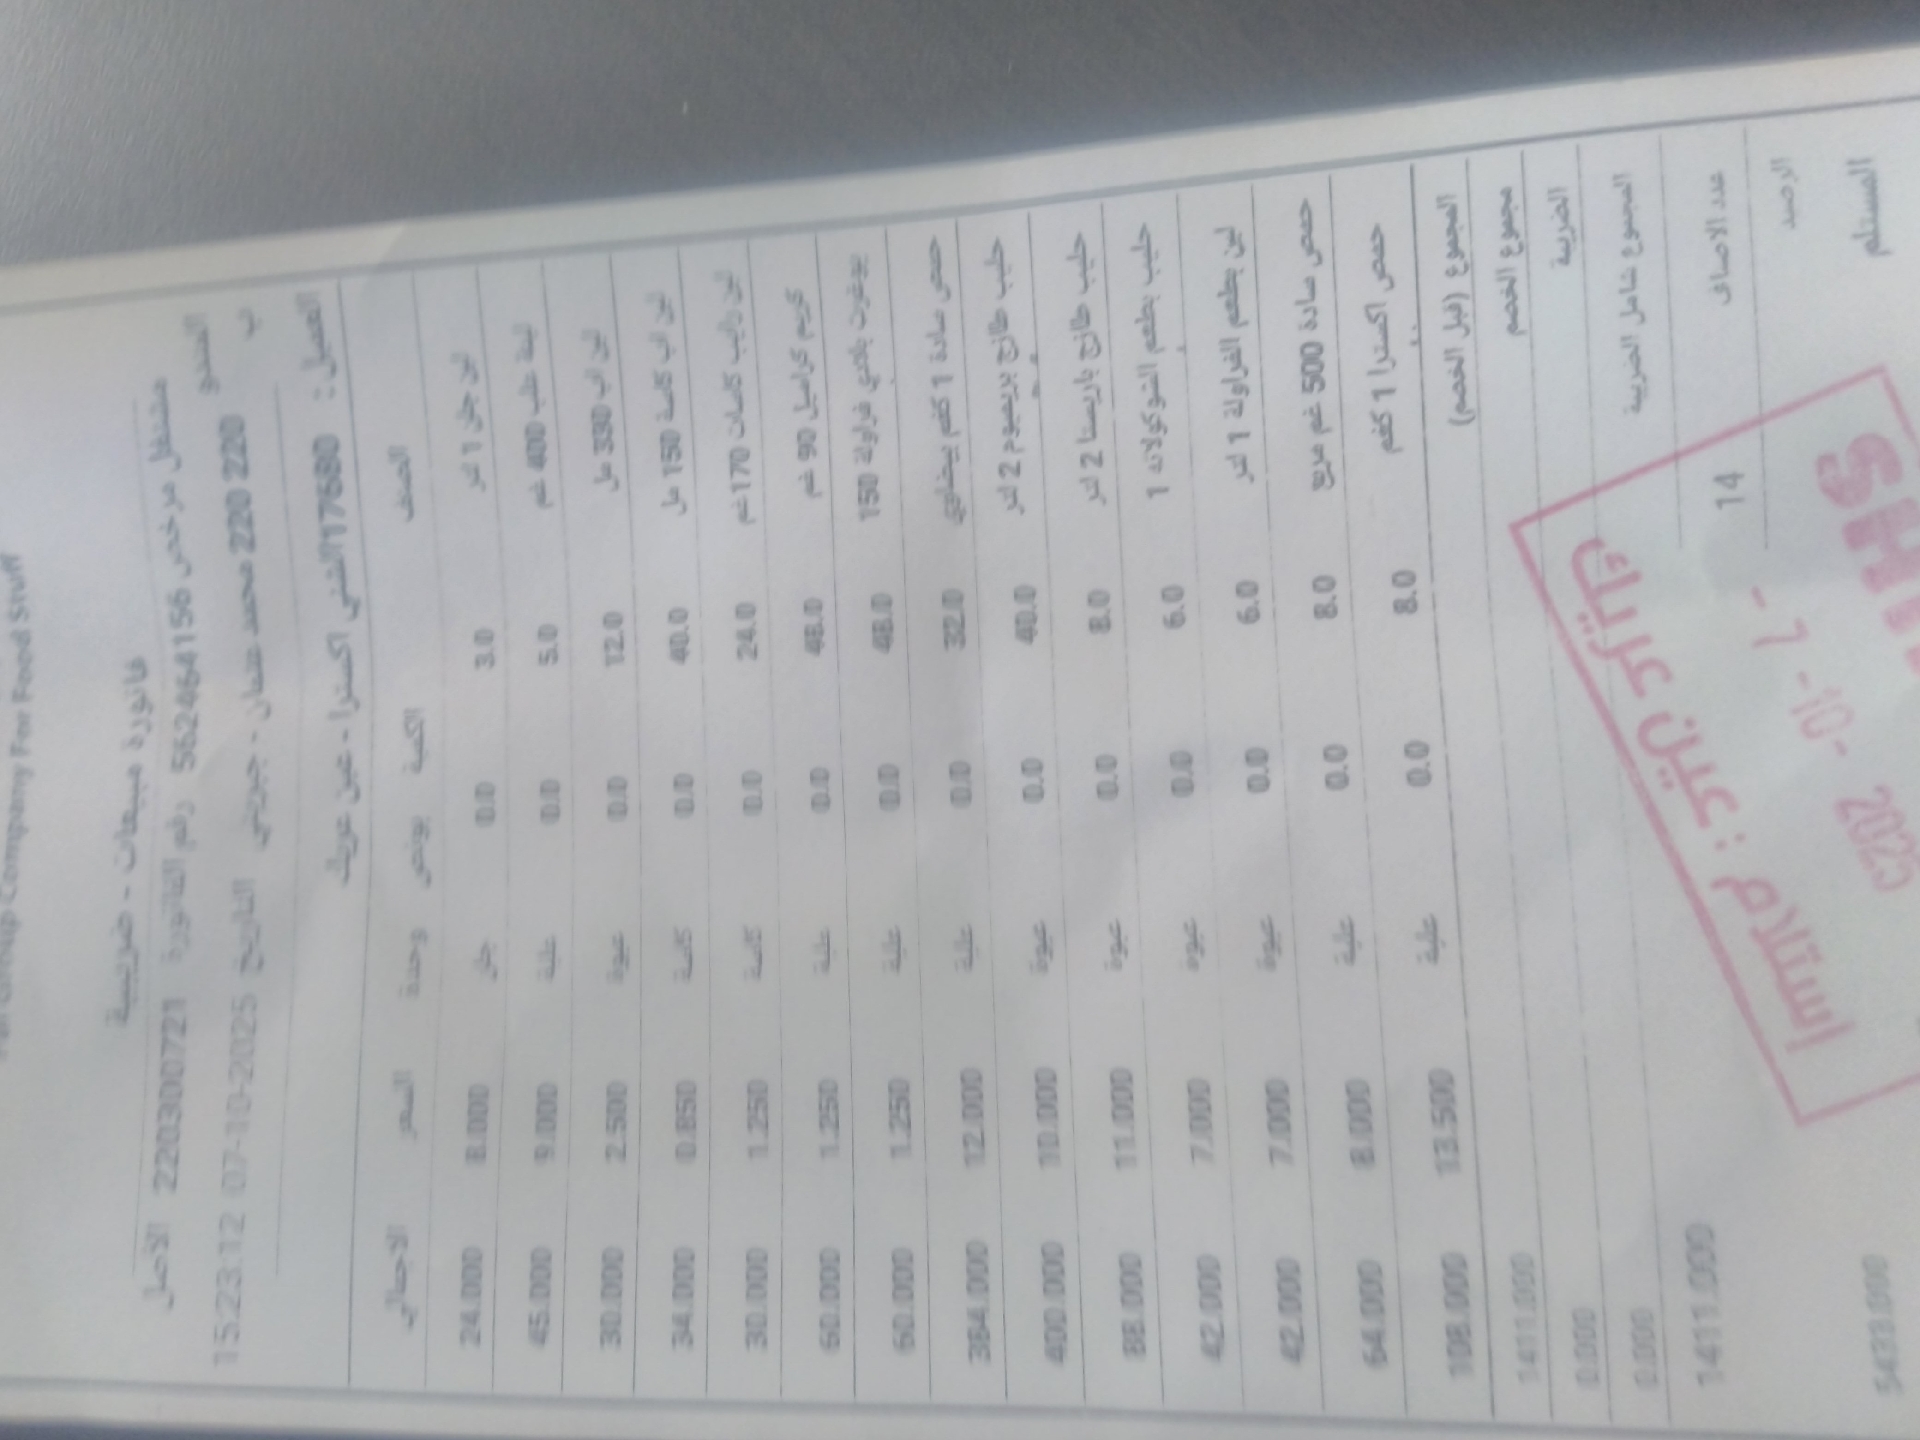 Group Company For Food Stuff
فاتورة مبيعات - ضريبية
مشتغل مرخص 562464156 رقم الفاتورة 2203000721 الأصل
المندوب 220 220 محمد - جبريني التاريخ 07-10-2025 15:23:12
العميل : 117680 الشني اكسترا - عين عريك
الصنف الكمية بونص وحدة السعر الاجمالي
لبن جلي 1 لتر 3.0 0.0 جلر 8.000 24.000
لبنة علب 400 غم 5.0 0.0 علبة 9.000 45.000
لبن اب 330 مل 12.0 0.0 عبوة 2.500 30.000
لبن اب كاسة 150 مل 40.0 0.0 كاسة 0.850 34.000
لبن رايب كاسات 170غم 24.0 0.0 كاسة 1.250 30.000
كريم كراميل 90 غم 48.0 0.0 علبة 1.250 60.000
يوغرت بلدي فراولة 150 48.0 0.0 علبة 1.250 60.000
حمص سادة 1 كغم بيضاوي 32.0 0.0 علبة 12.000 384.000
حليب طازج بريميوم 2 لتر 40.0 0.0 عبوة 10.000 400.000
حليب طازج باريستا 2 لتر 8.0 0.0 عبوة 11.000 88.000
حليب بطعم الشوكولاته 1 6.0 0.0 عبوة 7.000 42.000
لبن بطعم الفراولة 1 لتر 6.0 0.0 عبوة 7.000 42.000
حمص سادة 500 غم مربع 8.0 0.0 علبة 8.000 64.000
حمص اكسترا 1 كغم 8.0 0.0 علبة 13.500 108.000
المجموع (قبل الخصم) 1411.000
مجموع الخصم 0.000
الضريبة 0.000
المجموع شامل الضريبة 1411.000
عدد الاصناف 14
الرصيد 5433.000
المستلم
استلام : عين عريك
- 7 -10- 2025